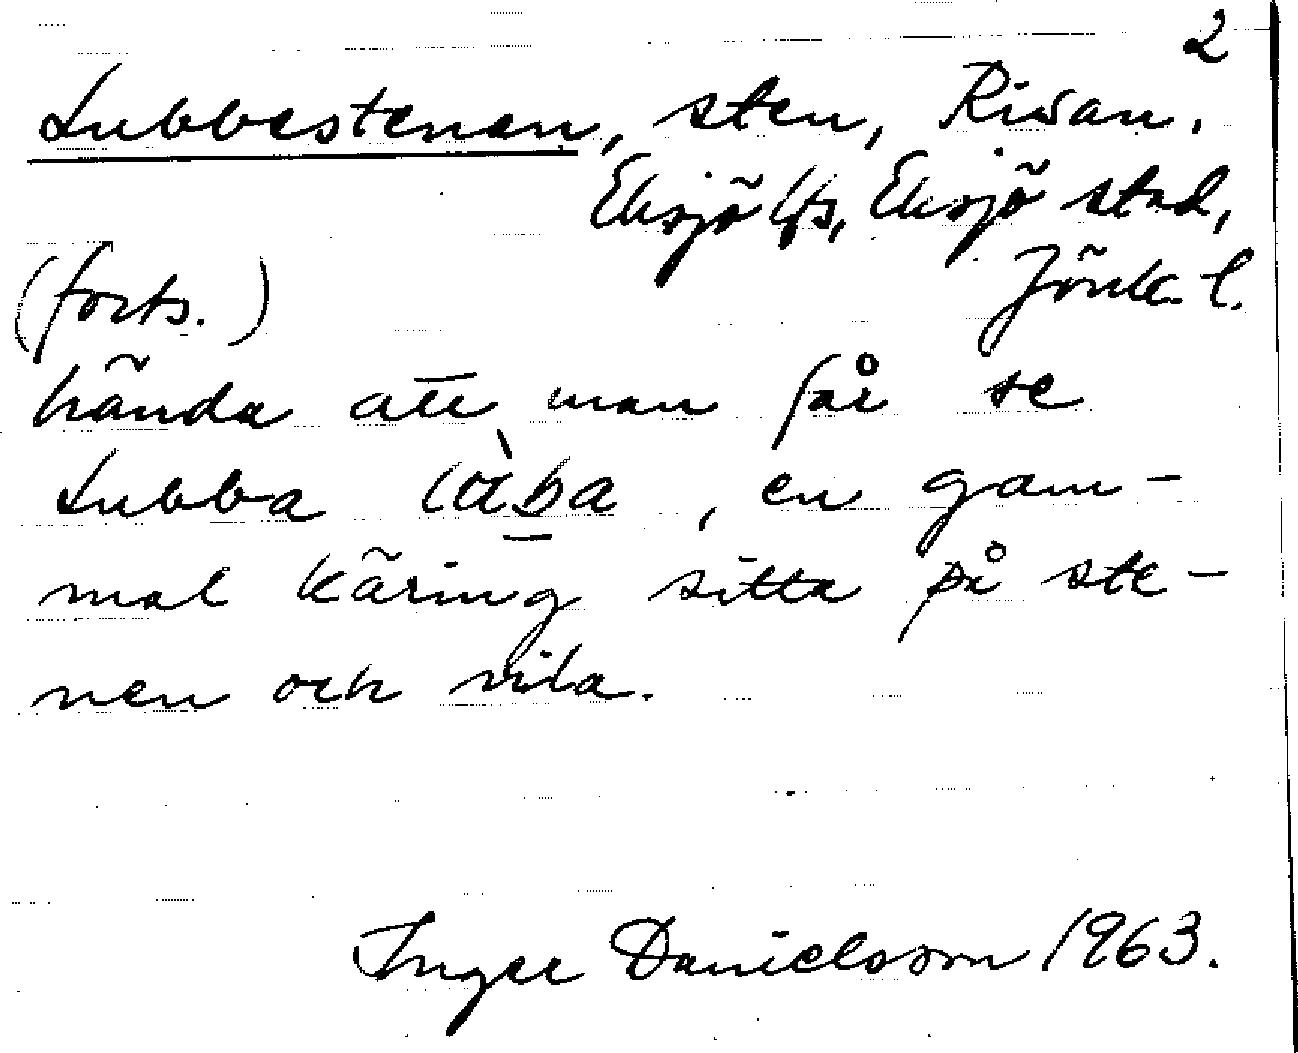 2
Lubbestenen, sten, Ridan.
Eksjö lfs, Eksjö stad,
Jönk. l.
(forts.)
hända att man får se
Lubba, en gam-
mal käring sitta på ste-
nen och vila.
Inger Danielsson 1963.